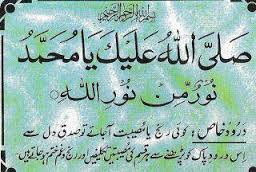 بسم الله الرحمن الرحيم
صَلَّى اللهُ عَلَيْكَ يَا مُحَمَّدُ
نُورٌ مِّنْ نُورِ اللهِ
درودِ خاص: کوئی رنج یا مصیبت آجائے تو صدق دل سے
اس درود پاک کو پڑھنے سے ہر قسم کی مصیبتیں تکلیفیں اور رنج وغم ختم ہو جاتے ہیں